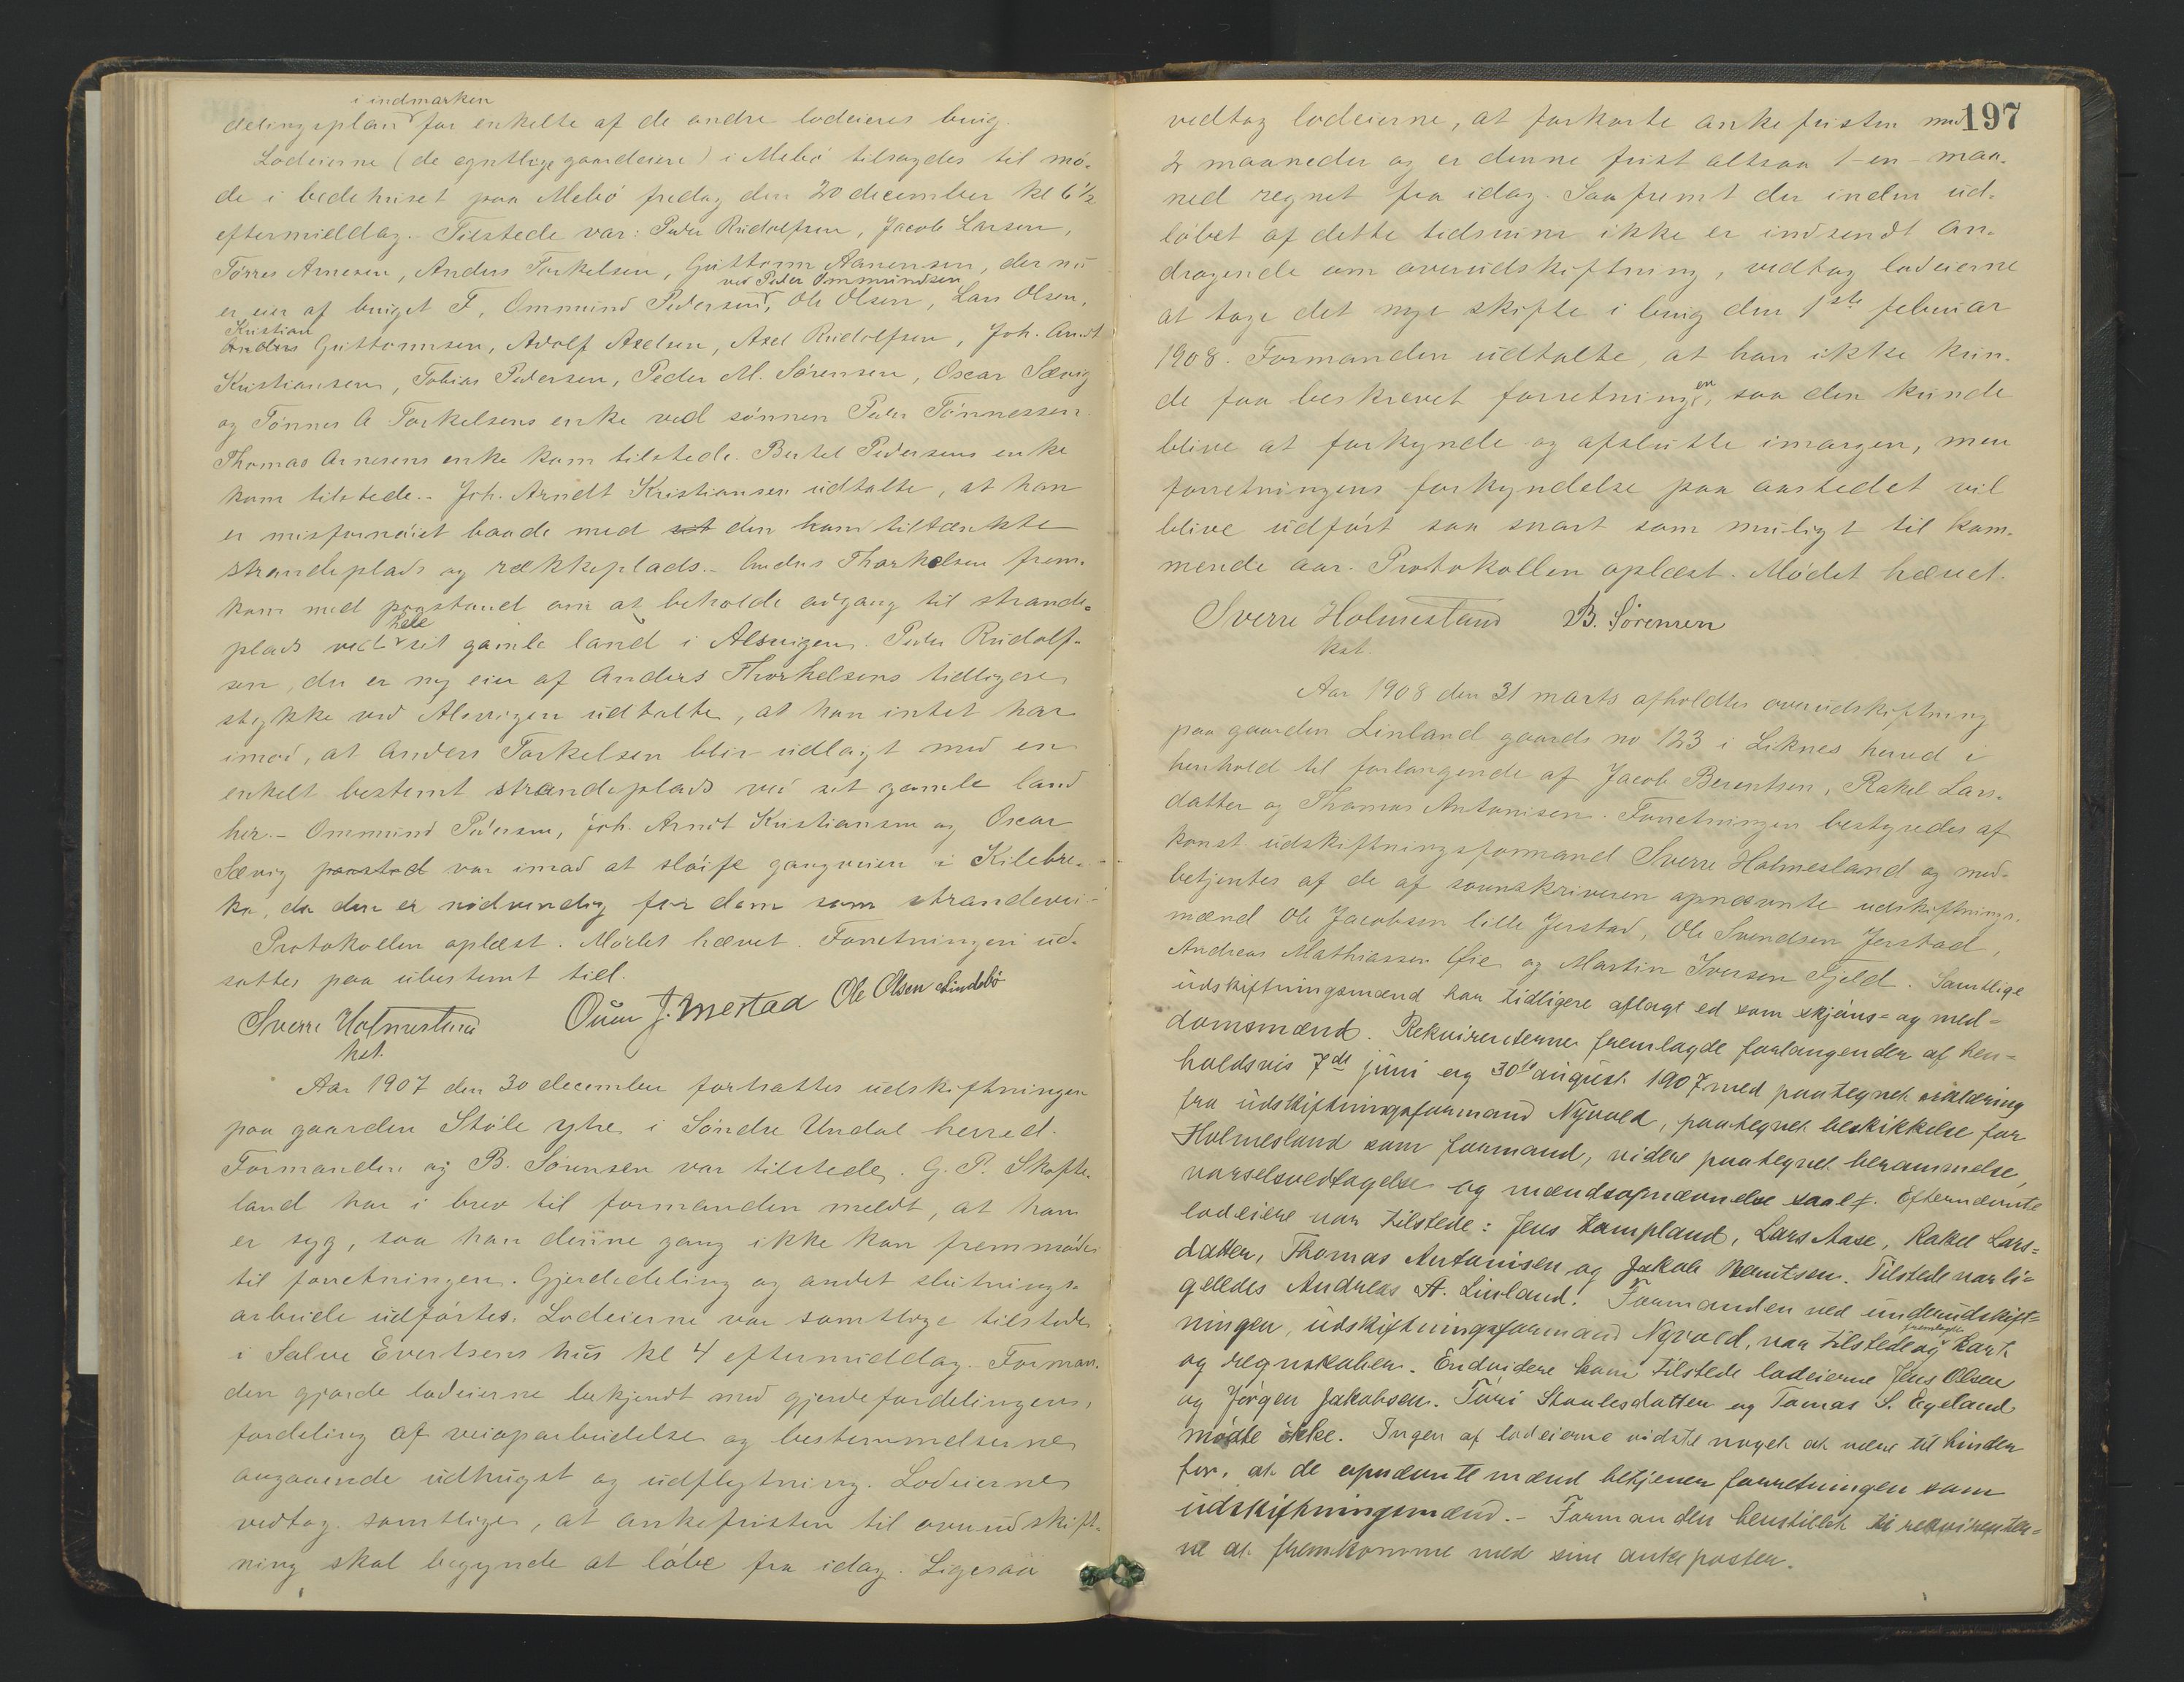 i indmarken
delingsplan for enkelte af de andre lodeieres brug.
Lodeierne (de egentlige gaardeiere) i Mebö tilsagdes til mö-
de i bedehuset paa Mebö fredag den 20 december kl 6 1/2
eftermiddag. Tilstede var: Peder Rudolfsen, Jacob Larsen,
Törres Arnesen, Anders Torkelsen, Guttorm Aanensen, der nu
ved Peder Ommundsen
er eier af bruget F, Ommund Pedersen, Ole Olsen, Lars Olsen,
Kristian
Anders Guttormsen, Adolf Axelsen, Axel Rudolfsen, Joh. Arndt
Kristiansen, Tobias Pedersen, Peder M. Sörensen, Oscar Sævig
og Tönnes A Torkelsens enke ved sönnen Peder Tönnessen.
Thomas Arnesens enke kom tilstede. Bertel Pedersens enke
kom tilstede.- Joh. Arndt Kristiansen udtalte, at han
er misfornöiet baade med sit den ham tiltænkte
strandeplads og rækkeplads.- Anders Thorkelsen frem-
kom med paastand om at beholde adgang til strande-
hele
plads ved sit gamle land i Alsvigen. Peder Rudolf-
sen, der er ny eier af Anders Thorkelsens tidligere
stykke ved Alsvigen udtalte, at han intet har
imod, at Anders Torkelsen blir udlagt med en
enkelt bestemt strandeplads ved sit gamle land
her.- Ommund Pedersen, Joh. Arndt Kristiansen og Oscar
Sævig paastod var imod at slöife gangveien i Kilebre-
ka, da den er nödvendig for dem som strandevei.-
Protokollen oplæst. Mödet hævet. Forretningen ud-
sattes paa ubestemt tid.
Sverre Holmesland J. Mestad Ole Olsen Lindebö
kst.
Aar 1907 den 30 december fortsattes udskiftningen
paa gaarden Stöle ytre i Söndre Undal herred.
Formanden og B. Sörensen var tilstede. G. P. Skofte-
land har i brev til formanden meldt, at han
er syg, saa han denne gang ikke kan fremmöde
til forretningen. Gjerdedeling og andet slutnings-
arbeide udförtes. Lodeierne var samtlige tilstede
i Salve Evertsens hus kl 4 eftermiddag. Forman-
den gjorde lodeierne bekjendt med gjerdefordelingen,
fordeling af veioparbeidelse og bestemmelserne
angaaende udhugst og udflytning. Lodeierne
vedtog samtlige, at ankefristen til overudskift-
ning skal begynde at löbe fra idag. Ligesaa
197
vedtog lodeierne, at forkorte ankefristen med
2 maaneder og er denne frist altsaa 1-en-maa-
ned regnet fra idag. Saafremt der inden ud-
löbet af dette tidsrum ikke er indsendt an-
dragende om overudskiftning, vedtog lodeierne
at tage det nye skifte i brug den 1ste februar
1908. Formanden udtalte, at han ikke kun-
en
de faa beskrevet forretning, saa den kunde
blive at forkynde og afslutte imorgen, men
forretningens forkyndelse paa aastedet vil
blive udfört saa snart som muligt til kom-
mende aar. Protokollen oplæst. Mödet hævet.
Sverre Holmesland B. Sörensen
kst.
Aar 1908 den 31 marts afholdtes overudskiftning
paa gaarden Linland gaards no 123 i Liknes herred i
henhold til forlangende af Jacob Berentsen, Rakel Lars-
datter og Thomas Antonisen. Forretningen bestyredes af
konst. udskiftningsformand Sverre Holmesland og med-
betjentes af de af sorenskriveren opnævnte udskiftnings-
mænd Ole Jacobsen lille Jerstad, Ole Svendsen Jerstad,
Andreas Mathiassen Öie og Martin Iversen Fjeld. Samtlige
udskiftningsmænd har tidligere aflagt ed som skjöns- og med-
domsmænd. Rekvirenterne fremlagde forlangender af hen-
holdsvis 7de juni og 30te august 1907 med paategnet erklæring
fra udskiftningsformand Nyvold, paategnet beskikkelse for
Holmesland som formand, videre paategnet berammelse,
varselsvedtagelse og mændsopnævnelse saal. Efternævnte
lodeiere var tilstede: Jens Kampland, Lars Aase, Rakel Lars-
datter, Thomas Antonisen og Jakob Berntsen. Tilstede var li-
geledes Andreas A. Linland. Formanden ved underudskift-
fremlagde
ningen, udskiftningsformand Nyvold, var tilstede og kart
og regnskaber. Endvidere kom tilstede lodeierne Jens Olsen
og Jörgen Jakobsen. Turi Staalesdatter og Tomas S. Egeland
mödte ikke. Ingen af lodeierne vidste noget at være til hinder
for, at de opnævnte mænd betjener forretningen som
udskiftningsmænd.- Formanden henstillet til rekvirenter-
ne at fremkomme med sine ankeposter.